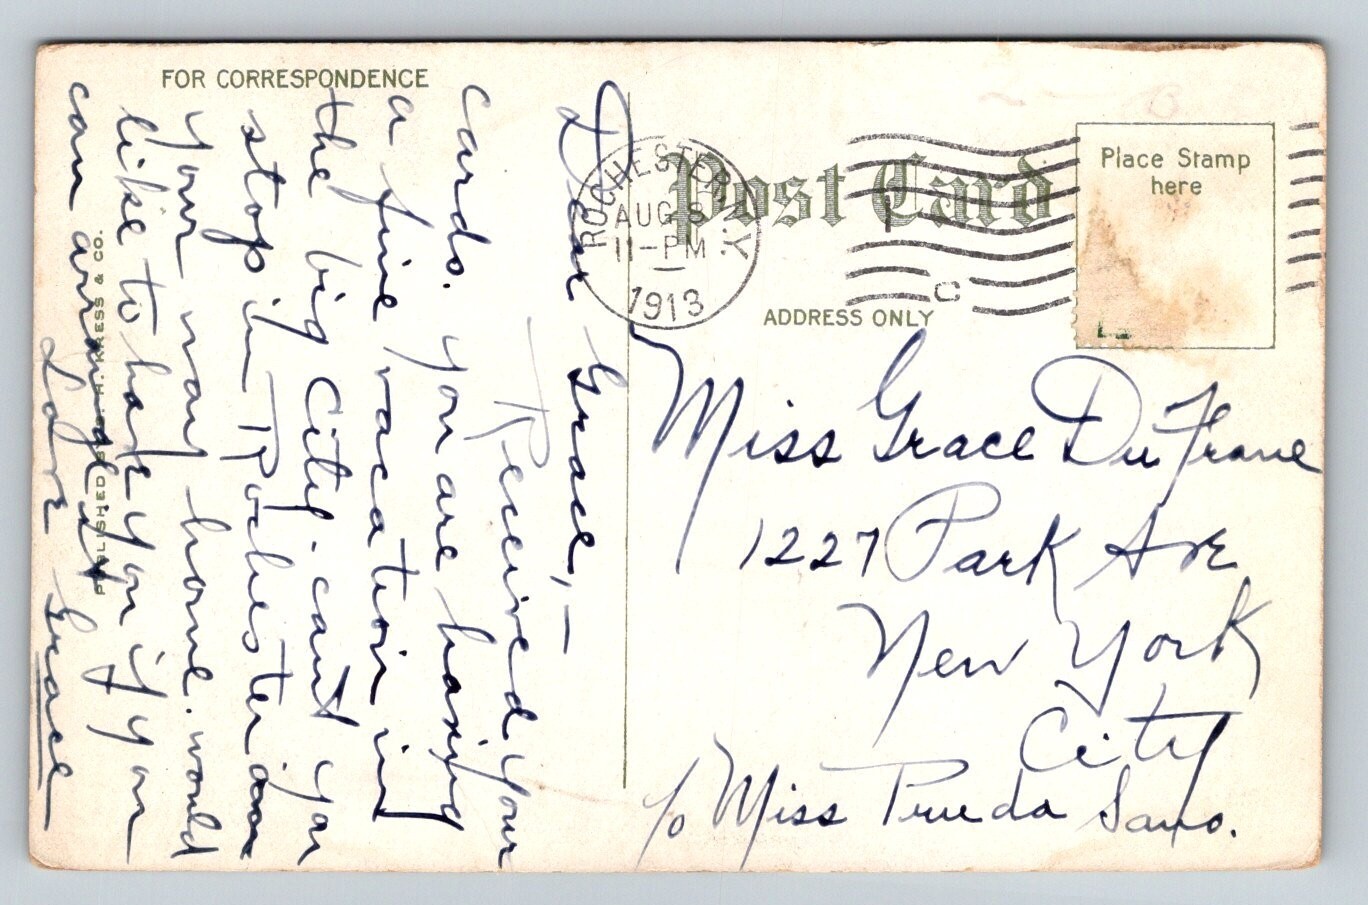 FOR CORRESPONDENCE
Dear Grace,—
Received your
cards. you are having
a fine vacation in
the big City. cant you
stop in Rochester on
your way home. would
like to have you if you
can arrange it
Love Grace
PUBLISHED BY S. H. KRESS & CO.
Post Card
ADDRESS ONLY
Place Stamp
here
ROCHESTER, N.Y.
AUG 8
11-PM
1913
C
Miss Grace DuFrane
1227 Park Ave
New York
City
c/o Miss Trueda